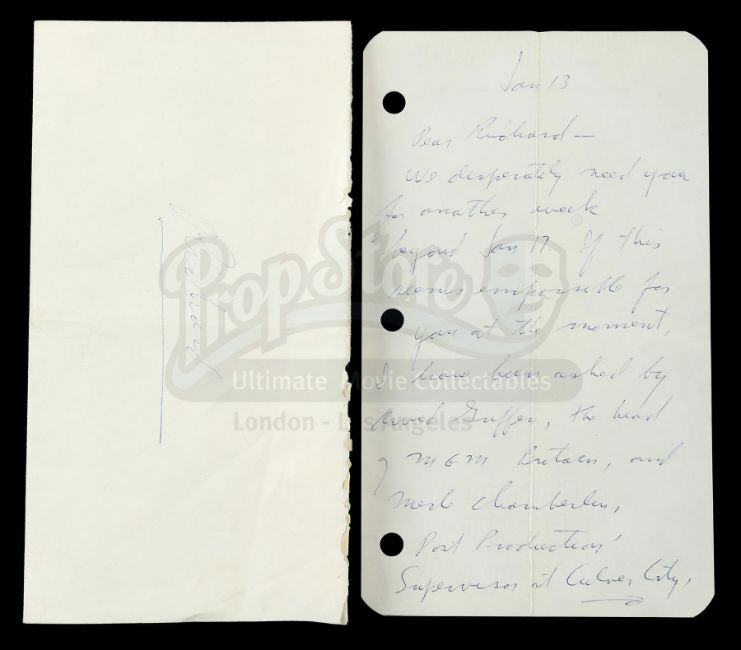 Richard
Jan 13
Dear Richard —
We desperately need you
for another week
beyond Jan 17. If this
seems impossible for
you at the moment,
I have been asked by
the head
of MGM Britain, and
Merle Chamberlin,
Post Production
Supervisor at Culver City,
PropStore
Ultimate Movie Collectables
London - Los Angeles